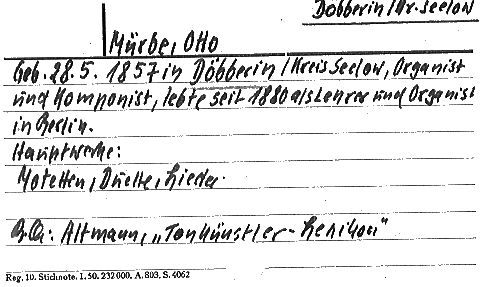 Döbberin/Kr. Seelow
Mürbe, Otto
Geb. 28.5. 1857 in Döbberin/Kreis Seelow, Organist
und Komponist, lebte seit 1880 als Lehrer und Organist
in Berlin.
Hauptwerke:
Motetten, Duette, Lieder.
B.Qu: Altmann, „Tonkünstler-Lexikon"
Reg. 10. Stichnote. 1. 50. 232 000. A. 803. S. 4062